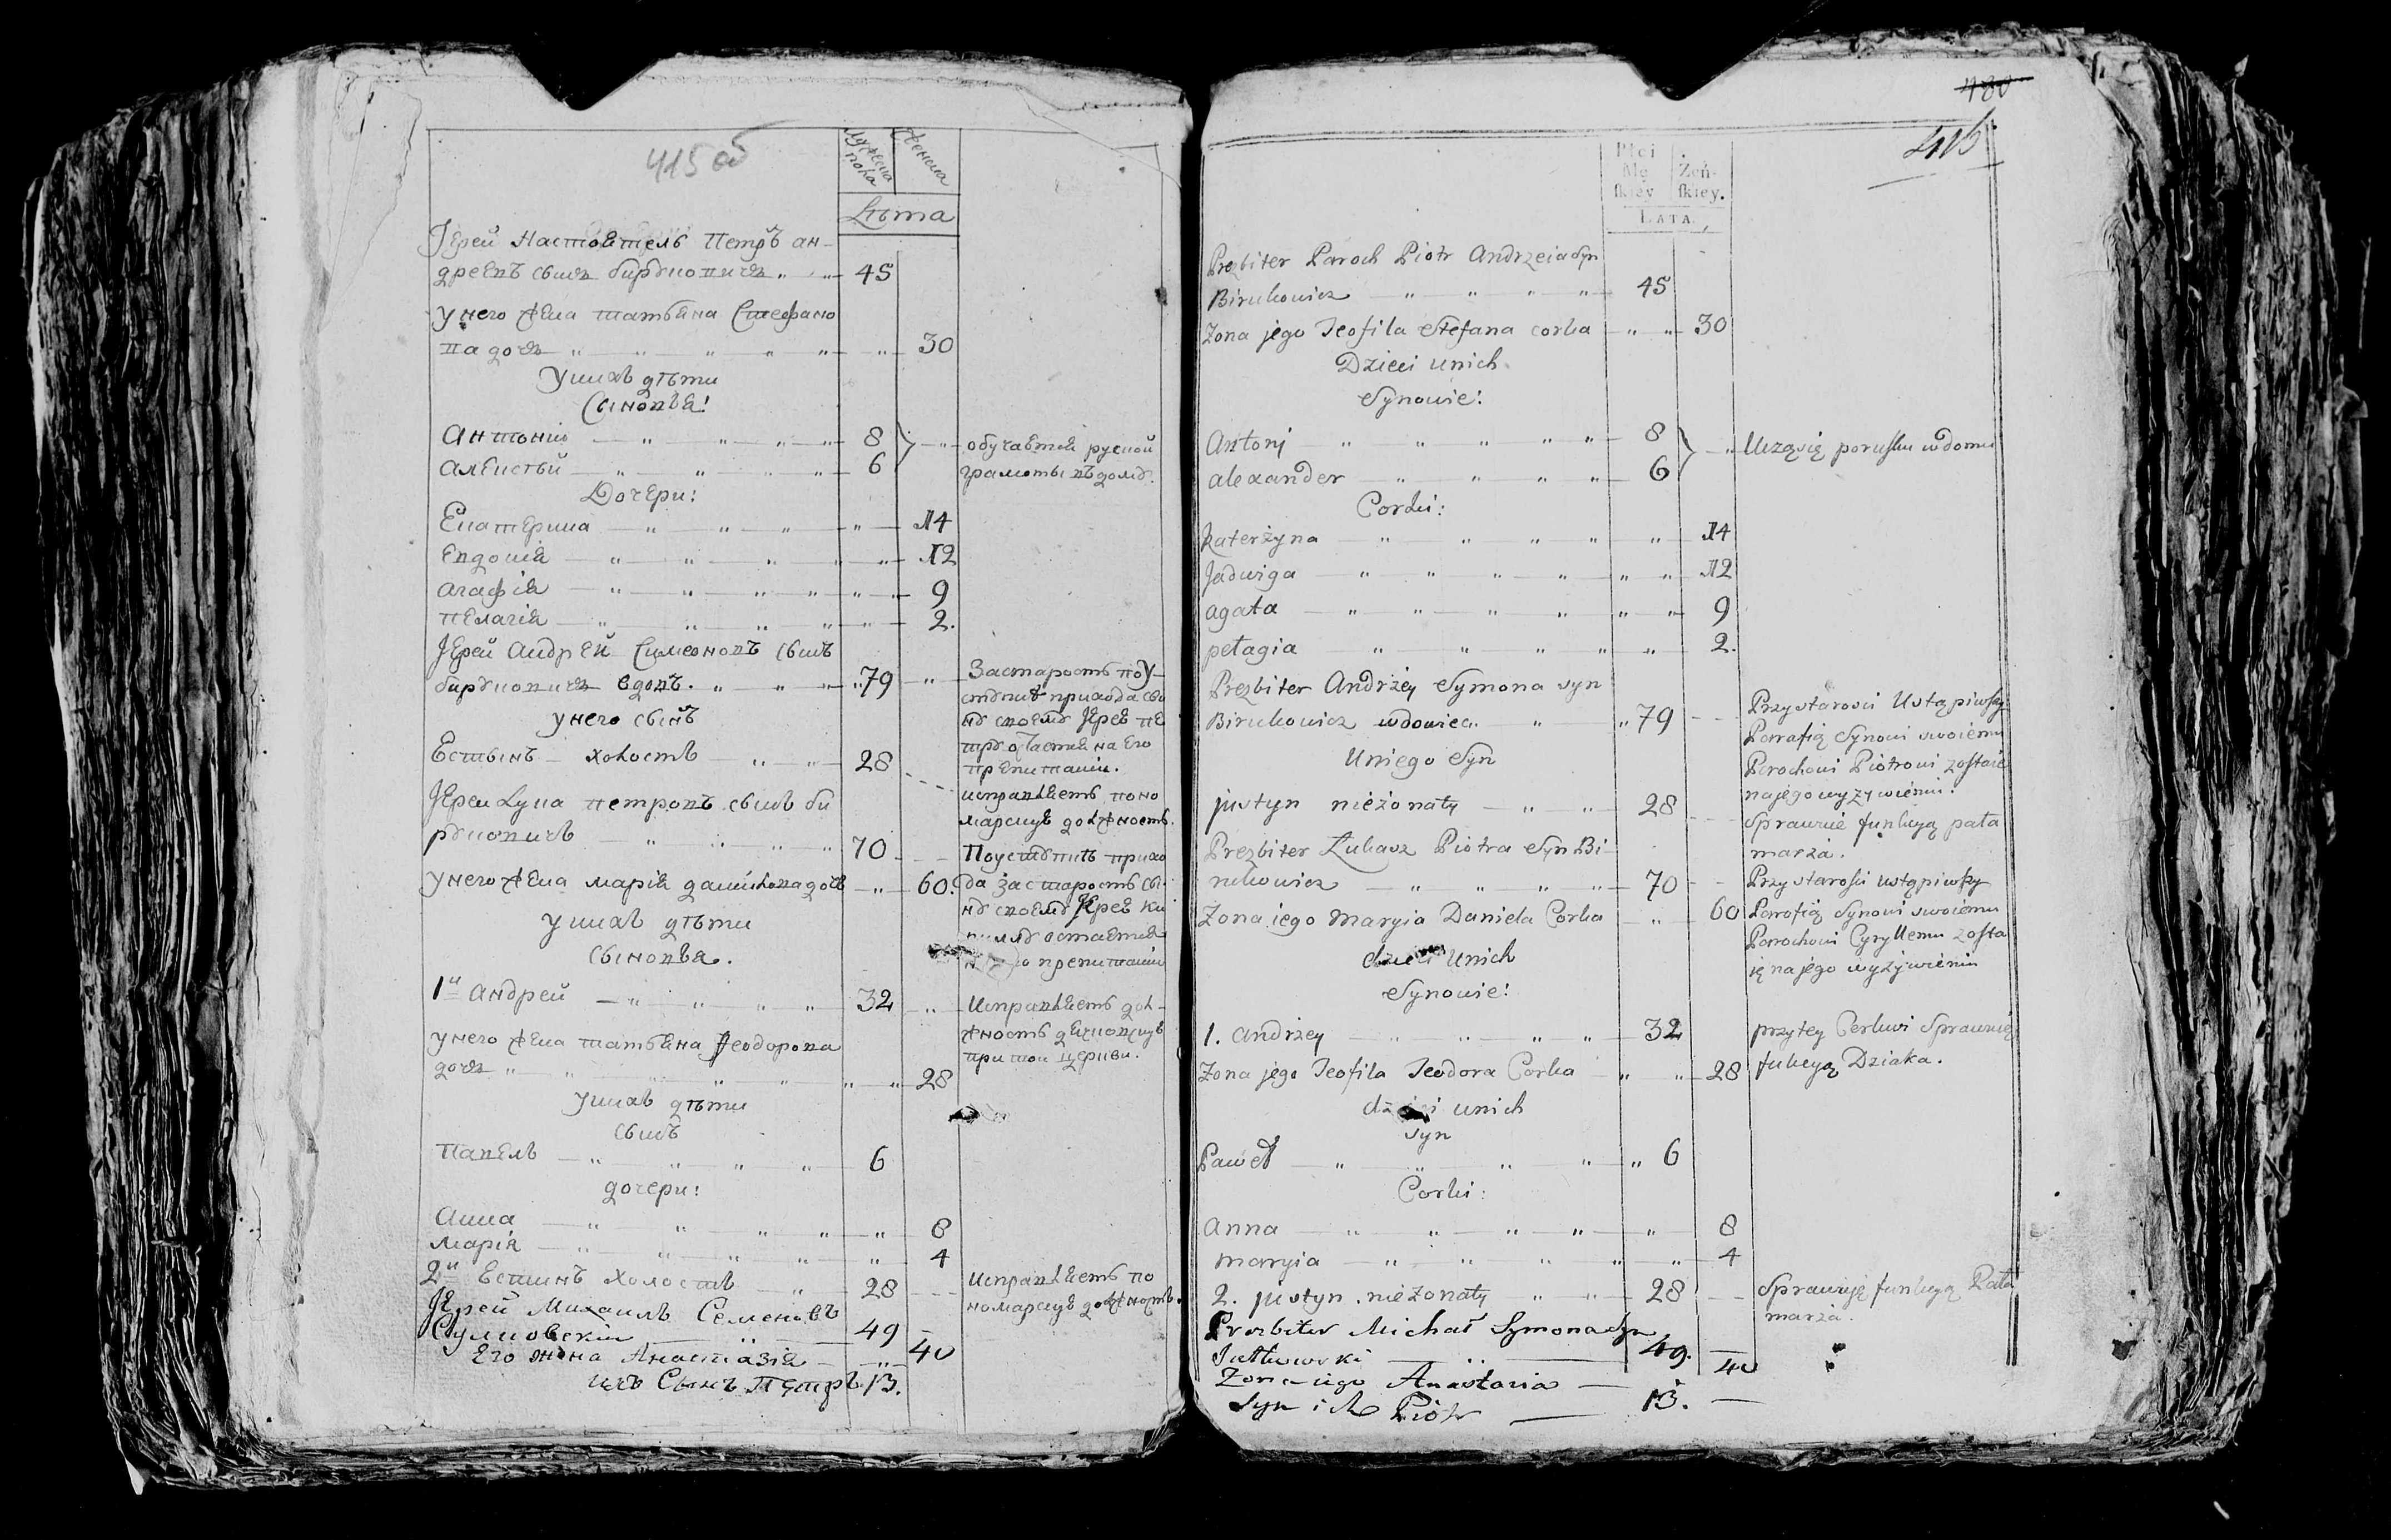 415 об
Мужеска пола
Женска
Лѣта
Іерей Настоятель Петръ ан-
дреевъ сынъ бирȣковичъ 45
у него жена татьяна Стефано
ва дочь 30
у нихъ дѣти
Сыновья:
Антоній 8
Алексѣй 6
обучается руской
грамоты въ домȣ.
Дочери:
Екатерина 14
Евдокія 12
Агафія 9
пелагія 2.
Іерей Андрей Симеоновъ сынъ
бирȣковичъ вдовъ. 79
За старость по У-
стȣпкѣ прихода сы
нȣ своемȣ Іерею пе
трȣ
на его
препитаніи.
у него сынъ
Естинъ холостъ 28
исправляетъ поно
марскую должность.
Іерей Лука петровъ сынъ би
рȣковичъ 70
По устȣпкѣ прихо
да за старость сы
нȣ своемȣ Іерею Ки
остается
препитаніи
у него жена марія данилова дочь 60.
у нихъ дѣти
Сыновья.
1й Андрей 32
Исправляетъ дол-
жность дячковскую
при той церкви.
у него жена татьяна Ѳеодорова
дочь 28
у нихъ дѣти
сынъ
Павелъ 6
дочери:
Анна 8
Марія 4
2й Естинъ холостъ 28
исправляетъ по
номарскую должность.
Іерей Михаилъ Семеновъ
49
Его жена Анастазія 40
ихъ Сынъ Петръ 13.
480
416
Płci Mę ſkiey
Żeń- ſkiey.
LATA.
Prezbiter Paroch Piotr Andrzeia Syn
Birukowicz 45
Zona jego Teofila Stefana corka 30
Dzieci unich
Synowie:
Antoni 8
alexander 6
Uczą się porusku wdomu
Corki:
Katerżyna 14
Jadwiga 12
agata 9
pełagia 2.
Prezbiter Andrżey Symona syn
Birukowicz wdowiec 79
Przy starosci Ustąpiwſzy
Parafią Synowi swoiemu
Parochowi Piotrowi zoſtaie
na jego wyzywieniu.
Uniego Syn
justyn nieżonaty 28
Sprawuie funkcyą pała
marza.
Prezbiter Łukasz Piotra Syn Bi-
rukowicz 70
Przy staroſci ustąpiwſzy
Parafią Synowi swoiemu
Parochowi Cyryllemu zoſta
ię na jego wyzywieniu
Zona iego Maryia Daniela Corka 60
dzieci Unich
Synowie:
1. Andrżey 32
przy tey Cerkwi Sprawuię
funkcyą Dziaka.
Zona jego Teofila Teodora Corka 28
dzieci unich
syn
Paweł 6
Corki:
Anna 8
Maryia 4
2. justyn nieżonaty 28
Sprawuię funkcyą Pała
marza.
Prezbiter Michał Symona Syn
Sułkowski 49.
Zona iego Anastazia 40
Syn ich Piotr 13.